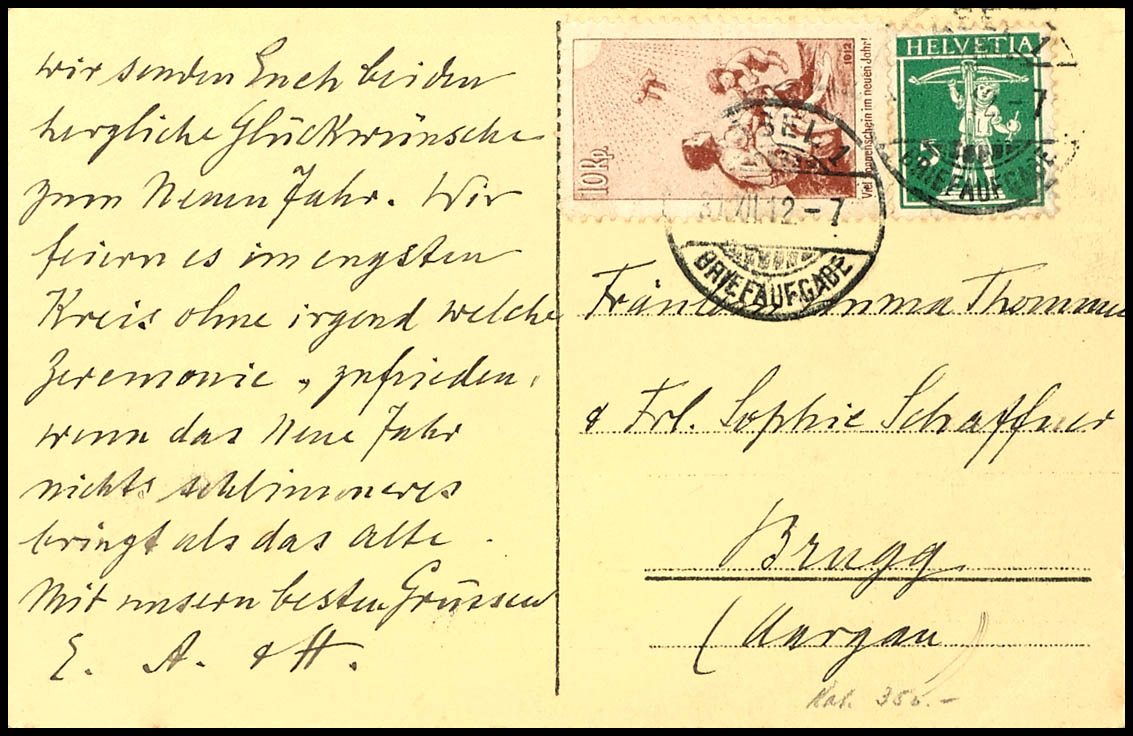 wir senden Euch beiden
herzliche Glückwünsche
zum Neuen Jahr. Wir
feiern es im engsten
Kreis ohne irgend welche
Zeremonie, zufrieden,
wenn das Neue Jahr
nichts schlimmeres
bringt als das alte.
Mit unsern besten Grüssen
E. A. & H.
10 Rp.
Viel Sonnenschein im neuen Jahr!
1912
HELVETIA
5
BASEL 1
31.XII.12-7
BRIEFAUFGABE
-7
BRIEFAUFGABE
Fräulein Emma Thommen
& Frl. Sophie Schaffner
Brugg
(Aargau)
Kat. 350.-